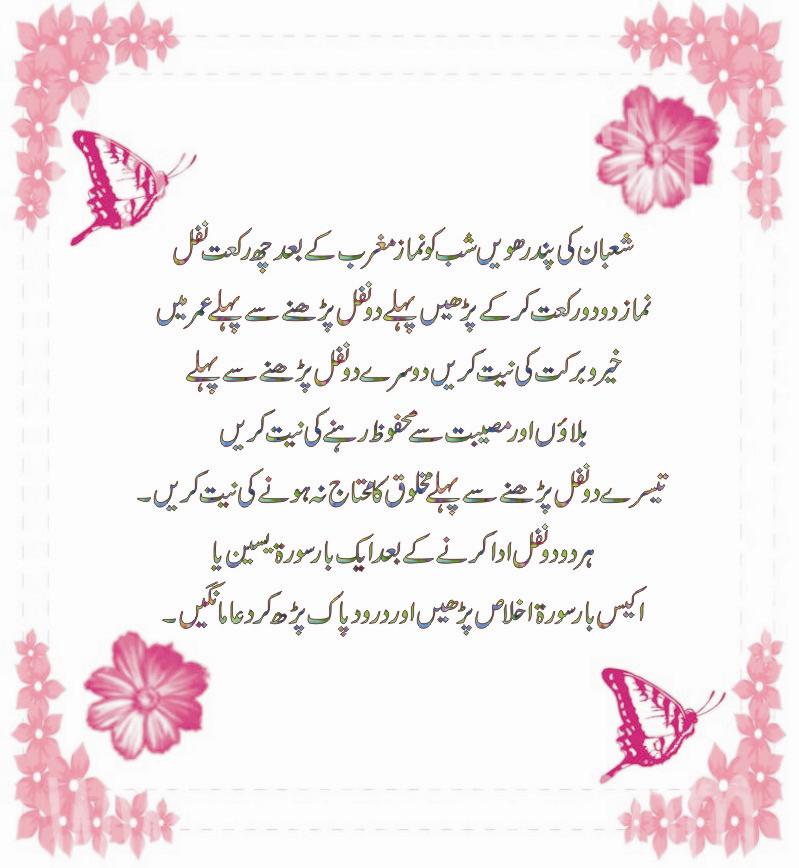 شعبان کی پندرھویں شب کو نماز مغرب کے بعد چھ رکعت نفل
نماز دو دو رکعت کر کے پڑھیں پہلے دو نفل پڑھنے سے پہلے عمر میں
خیر و برکت کی نیت کریں دوسرے دو نفل پڑھنے سے پہلے
بلاؤں اور مصیبت سے محفوظ رہنے کی نیت کریں
تیسرے دو نفل پڑھنے سے پہلے مخلوق کا محتاج نہ ہونے کی نیت کریں۔
ہر دو دو نفل ادا کرنے کے بعد ایک بار سورۃ یسین یا
اکیس بار سورۃ اخلاص پڑھیں اور درود پاک پڑھ کر دعا مانگیں۔